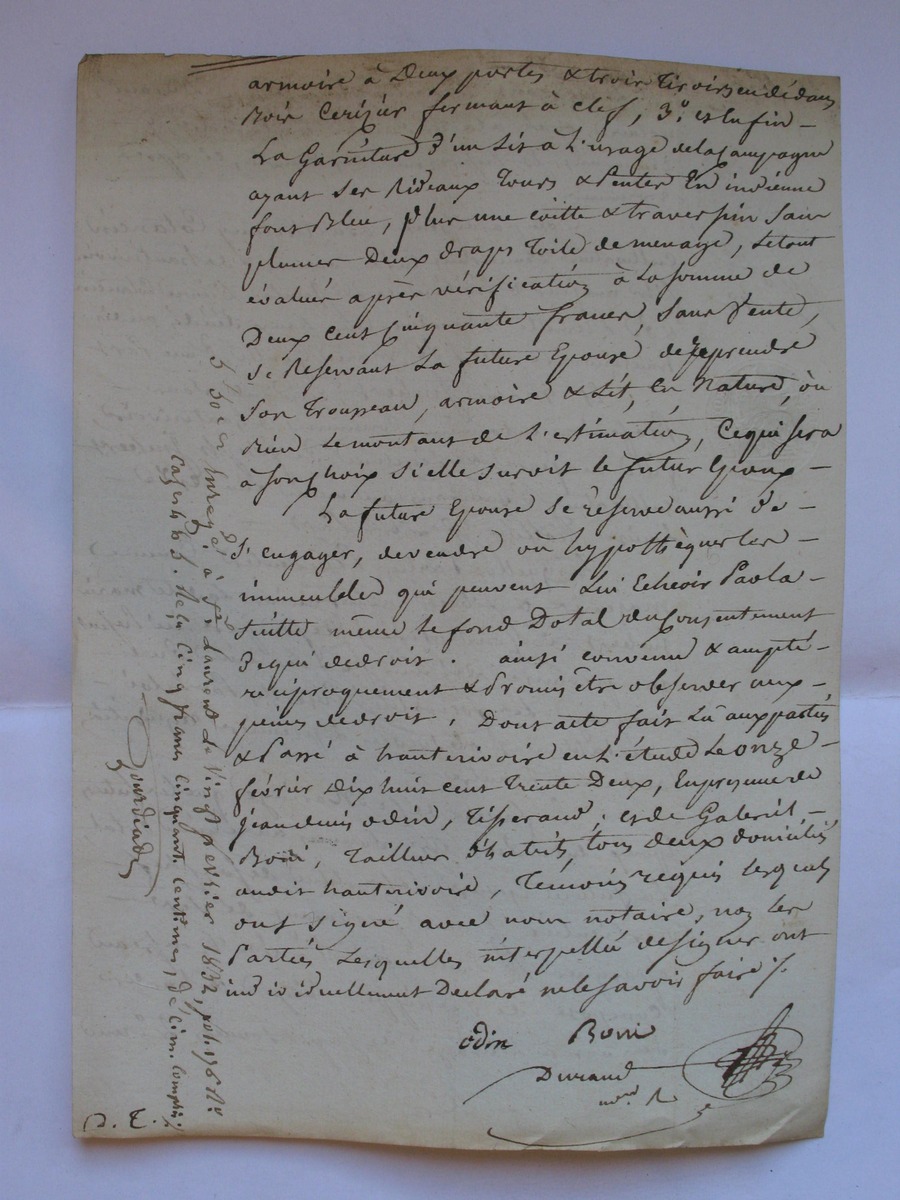 armoire à Deux portes & trois Tiroirs en dédans
Bois Cerizier fermant à clef, 3.º et enfin –
La Garniture d'un Lit à L'usage de la Campagne
ayant Ses Rideaux Tours & Pentes En indienne
font Bleu, plus une Coitte & traverspin Sain
plumes Deux draps Toile de menage, Le tout
évalués après vérification à La somme de
Deux Cent Cinquante francs, Sans Vente,
Se Reservant La future Epouse de reprendre
Son Trousseau, armoire & Lit, En Nature, où
Bien Le montant de L'estimation, Ce qui sera
à son choix si elle survit le futur Epoux –
La future Epouse Se réserve aussi de –
S'engager, de vendre où hypothèquer les –
immeubles qui peuvent Lui Echeoir Par la –
Suitte même Le fond Dotal du Consentement
De qui de droit . ainsi convenu & accepté
réciproquement & Promis être observer aux –
peines de droit, Dont acte fait Lû aux parties
& Passé à hauterivoire en L'étude Le onze –
février Dix huit cent Trente Deux, En presence de
jean denis odin, Tisserand, et de Gabriel –
Boni, Tailleur d'habits, tous Deux domiciliés
audit hauterivoire, Témoins requis Lesquels
ont Signé avec nous notaire, non les
Parties Lesquelles interpellé de signer ont
individuellement Declaré ne le savoir faire ./.
odin Boni
Durand
not.re R.
Enregé. à St. Laurent Le Vingt fevrier 1832, fol. 176 R.º
cases 4 & 5. Recu Cinq francs Cinquante Centimes, decime Compris ./.
Jourdiade
D. T.